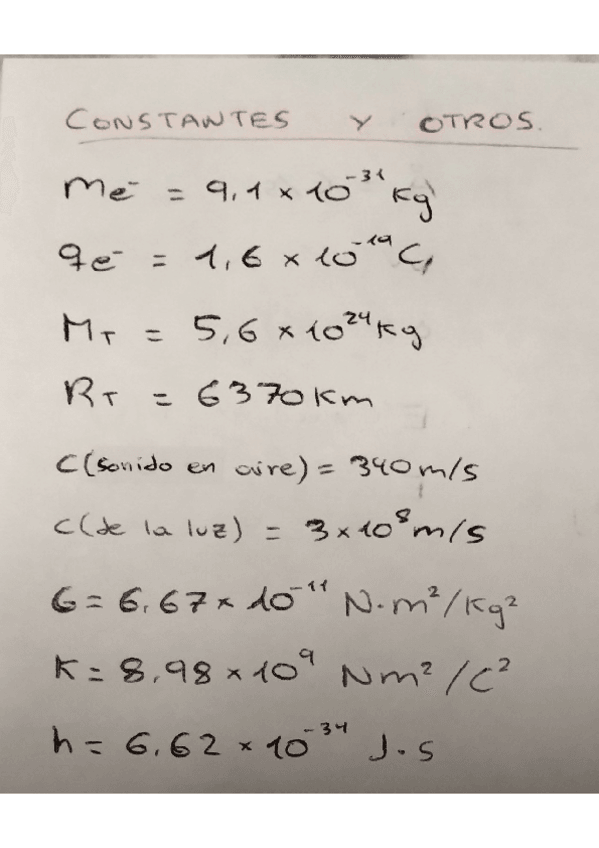 CONSTANTES Y OTROS.
me⁻ = 9,1 × 10⁻³¹ Kg
qe⁻ = 1,6 × 10⁻¹⁹ C
M_T = 5,6 × 10²⁴ Kg
R_T = 6370 Km
C (sonido en aire) = 340 m/s
C (de la luz) = 3 × 10⁸ m/s
G = 6,67 × 10⁻¹¹ N·m²/Kg²
K = 8,98 × 10⁹ Nm²/C²
h = 6,62 × 10⁻³⁴ J·s